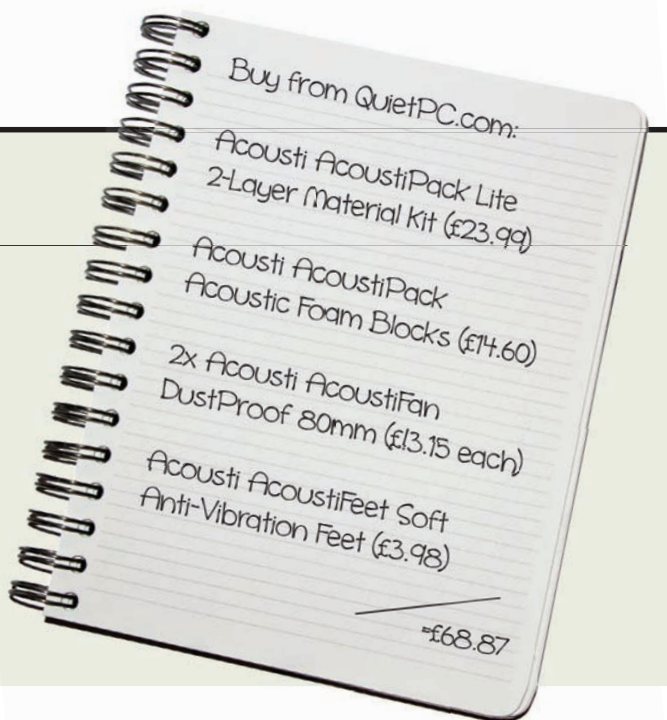 Buy from QuietPC.com:
Acousti AcoustiPack Lite
2-Layer Material Kit (£23.99)
Acousti AcoustiPack
Acoustic Foam Blocks (£14.60)
2x Acousti AcoustiFan
DustProof 80mm (£13.15 each)
Acousti AcoustiFeet Soft
Anti-Vibration Feet (£3.98)
=£68.87